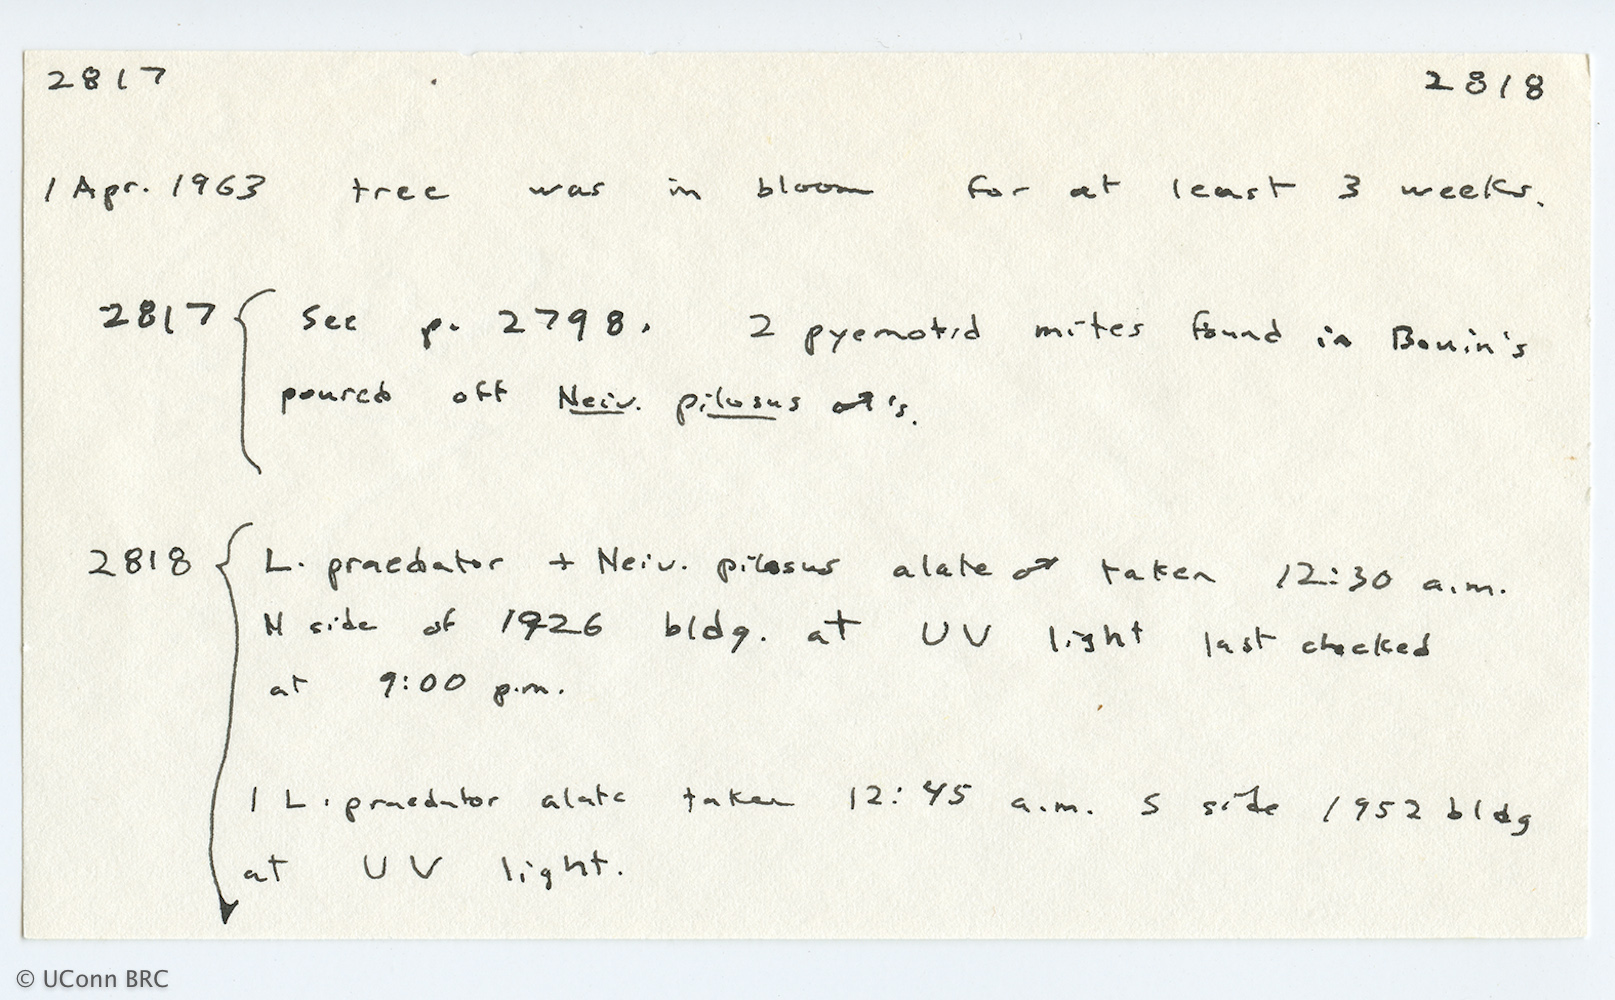 2817 2818
1 Apr. 1963 tree was in bloom for at least 3 weeks.
2817 { See p. 2798. 2 pyemotid mites found in Bouin's
poured off Neiv. pilosus ♂'s.
2818 { L. praedator + Neiv. pilosus alate ♂ taken 12:30 a.m.
N side of 1926 bldg. at UV light last checked
at 9:00 p.m.
1 L. praedator alate taken 12:45 a.m. S side 1952 bldg
at UV light.
© UConn BRC